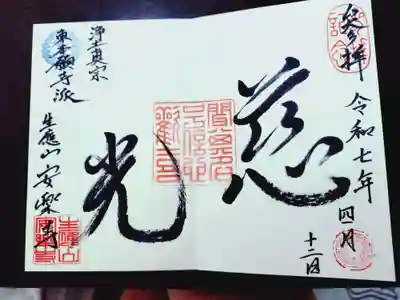 参拝
令和七年
四月
十二日
慈
光
浄土真宗
東本願寺派
生應山
安楽寺